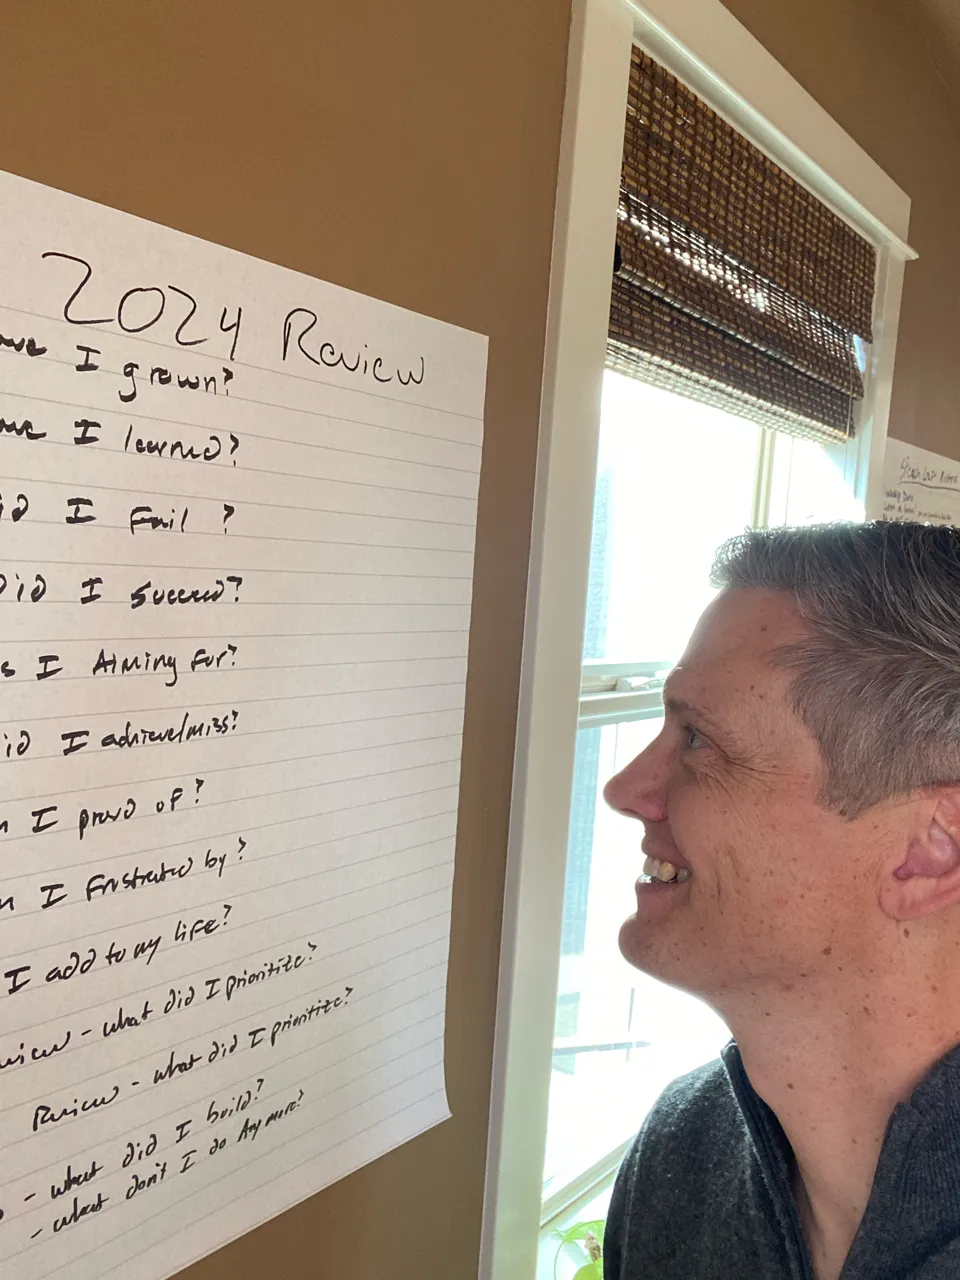 2024 Review
ave I grown?
ave I learned?
id I Fail ?
Did I succeed?
s I Aiming for?
id I achieve/miss?
m I proud of?
m I frustrated by?
I add to my life?
view - what did I prioritize?
Review - what did I prioritize?
- what did I build?
- what don't I do Anymore?